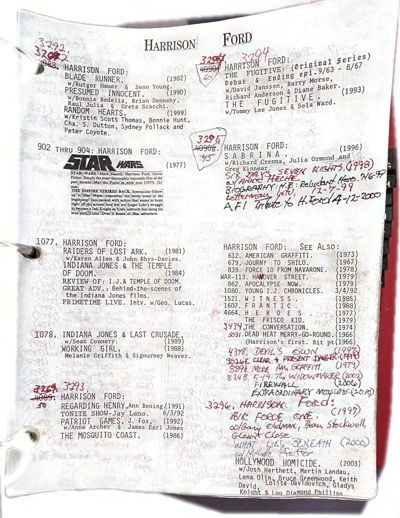 HARRISON FORD
3292
HARRISON FORD:
BLADE RUNNER. (1982)
w/Rutger Hauer & Sean Young.
PRESUMED INNOCENT. (1990)
w/Bonnie Bedelia, Brian Dennehy,
Raul Julia & Greta Scacchi.
RANDOM HEARTS. (1999)
w/Kristin Scott Thomas, Bonnie Hunt,
Cha. S. Dutton, Sydney Pollack and
Peter Coyote.
902 THRU 904: HARRISON FORD:
STAR WARS (1977)
THE EMPIRE STRIKES BACK.
1077. HARRISON FORD:
RAIDERS OF LOST ARK. (1981)
w/Karen Allen & John Rhys-Davies.
INDIANA JONES & THE TEMPLE
OF DOOM. (1984)
REVIEW OF: I.J.& TEMPLE OF DOOM.
GREAT ADV.: Behind-the-scenes of
the Indiana Jones films.
PRIMETIME LIVE. Intv. w/Geo. Lucas.
1078. INDIANA JONES & LAST CRUSADE.
w/Sean Connery. (1989)
WORKING GIRL. (1988)
Melanie Griffith & Sigourney Weaver.
3293
4089. HARRISON FORD:
REGARDING HENRY, Ann Bening (1991)
TONITE SHOW-Jay Leno. 6/3/92
PATRIOT GAMES, J. Fox. (1992)
w/Anne Archer & James Earl Jones
THE MOSQUITO COAST. (1986)
3294
4090. HARRISON FORD:
THE FUGITIVE: (Original Series)
Debut & Ending epi. 9/63 - 8/67
w/David Janssen, Barry Morse,
Richard Anderson & Diane Baker.
THE FUGITIVE. (1993)
w/Tommy Lee Jones & Sela Ward.
3295
HARRISON FORD:
SABRINA. (1996)
w/Richard Crenna, Julia Ormond and
Greg Kinnear.
SIX DAYS SEVEN NIGHTS. (1998)
w/ANNE HECHE
BIOGRAPHY: H.F. Reluctant Hero.
A.F.I. Tribute to H. FORD 4-12-2000
HARRISON FORD: See Also:
612. AMERICAN GRAFFITI. (1973)
679. JOURNY TO SHILO. (1967)
839. FORCE 10 FROM NAVARONE. (1978)
WAR-113. HANOVER STREET. (1979)
862. APOCALYPSE NOW. (1979)
1080. YOUNG I.J. CHRONICLES. 3/4/92
1521. WITNESS. (1985)
1607. FRANTIC. (1988)
4664. HEROES. (1977)
THE FRISCO KID. (1979)
3434. THE CONVERSATION. (1974)
3031. DEAD HEAT MERRY-GO-ROUND. (1966)
(Harrison's first. Bit pt)
4378. DEVIL'S OWN (1997)
3026. CLEAR & PRESENT DANGER (1994)
3898. MORE AM. GRAFFITI. (1979)
8248. K-19 THE WIDOWMAKER (2002)
FIREWALL (2006)
EXTRAORDINARY MEASURES (2010)
3296. HARRISON FORD:
AIR FORCE ONE. (1997)
w/Gary Oldman, Dean Stockwell,
Glenn Close.
WHAT LIES BENEATH (2000)
w/ Michelle Pfeiffer
HOLLYWOOD HOMICIDE. (2003)
w/Josh Hartnett, Martin Landau,
Lena Olin, Bruce Greenwood, Keith
David, Lolita Davidovich, Gladys
Knight & Lou Diamond Phillips